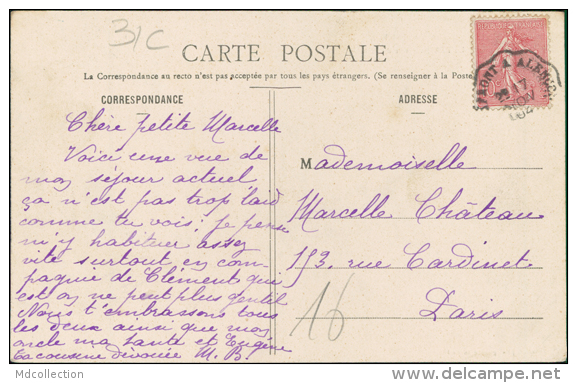 31C
CARTE POSTALE
La Correspondance au recto n'est pas acceptée par tous les pays étrangers. (Se renseigner à la Poste
CORRESPONDANCE
ADRESSE
Chère petite Marcelle
Voici une vue de
mon séjour actuel,
ça n'est pas trop laid
comme tu vois. Je pense
m'y habituer assez
vite surtout en com
pagnie de Clément qui
est on ne peut plus gentil
Nous t'embrassons tous
les deux ainsi que mon
oncle ma tante et Eugène
Ta cousine dévouée M. B.
Mademoiselle
Marcelle Château
153, rue Cardinet
Paris
16
Mdcollection
www.delcampe.net